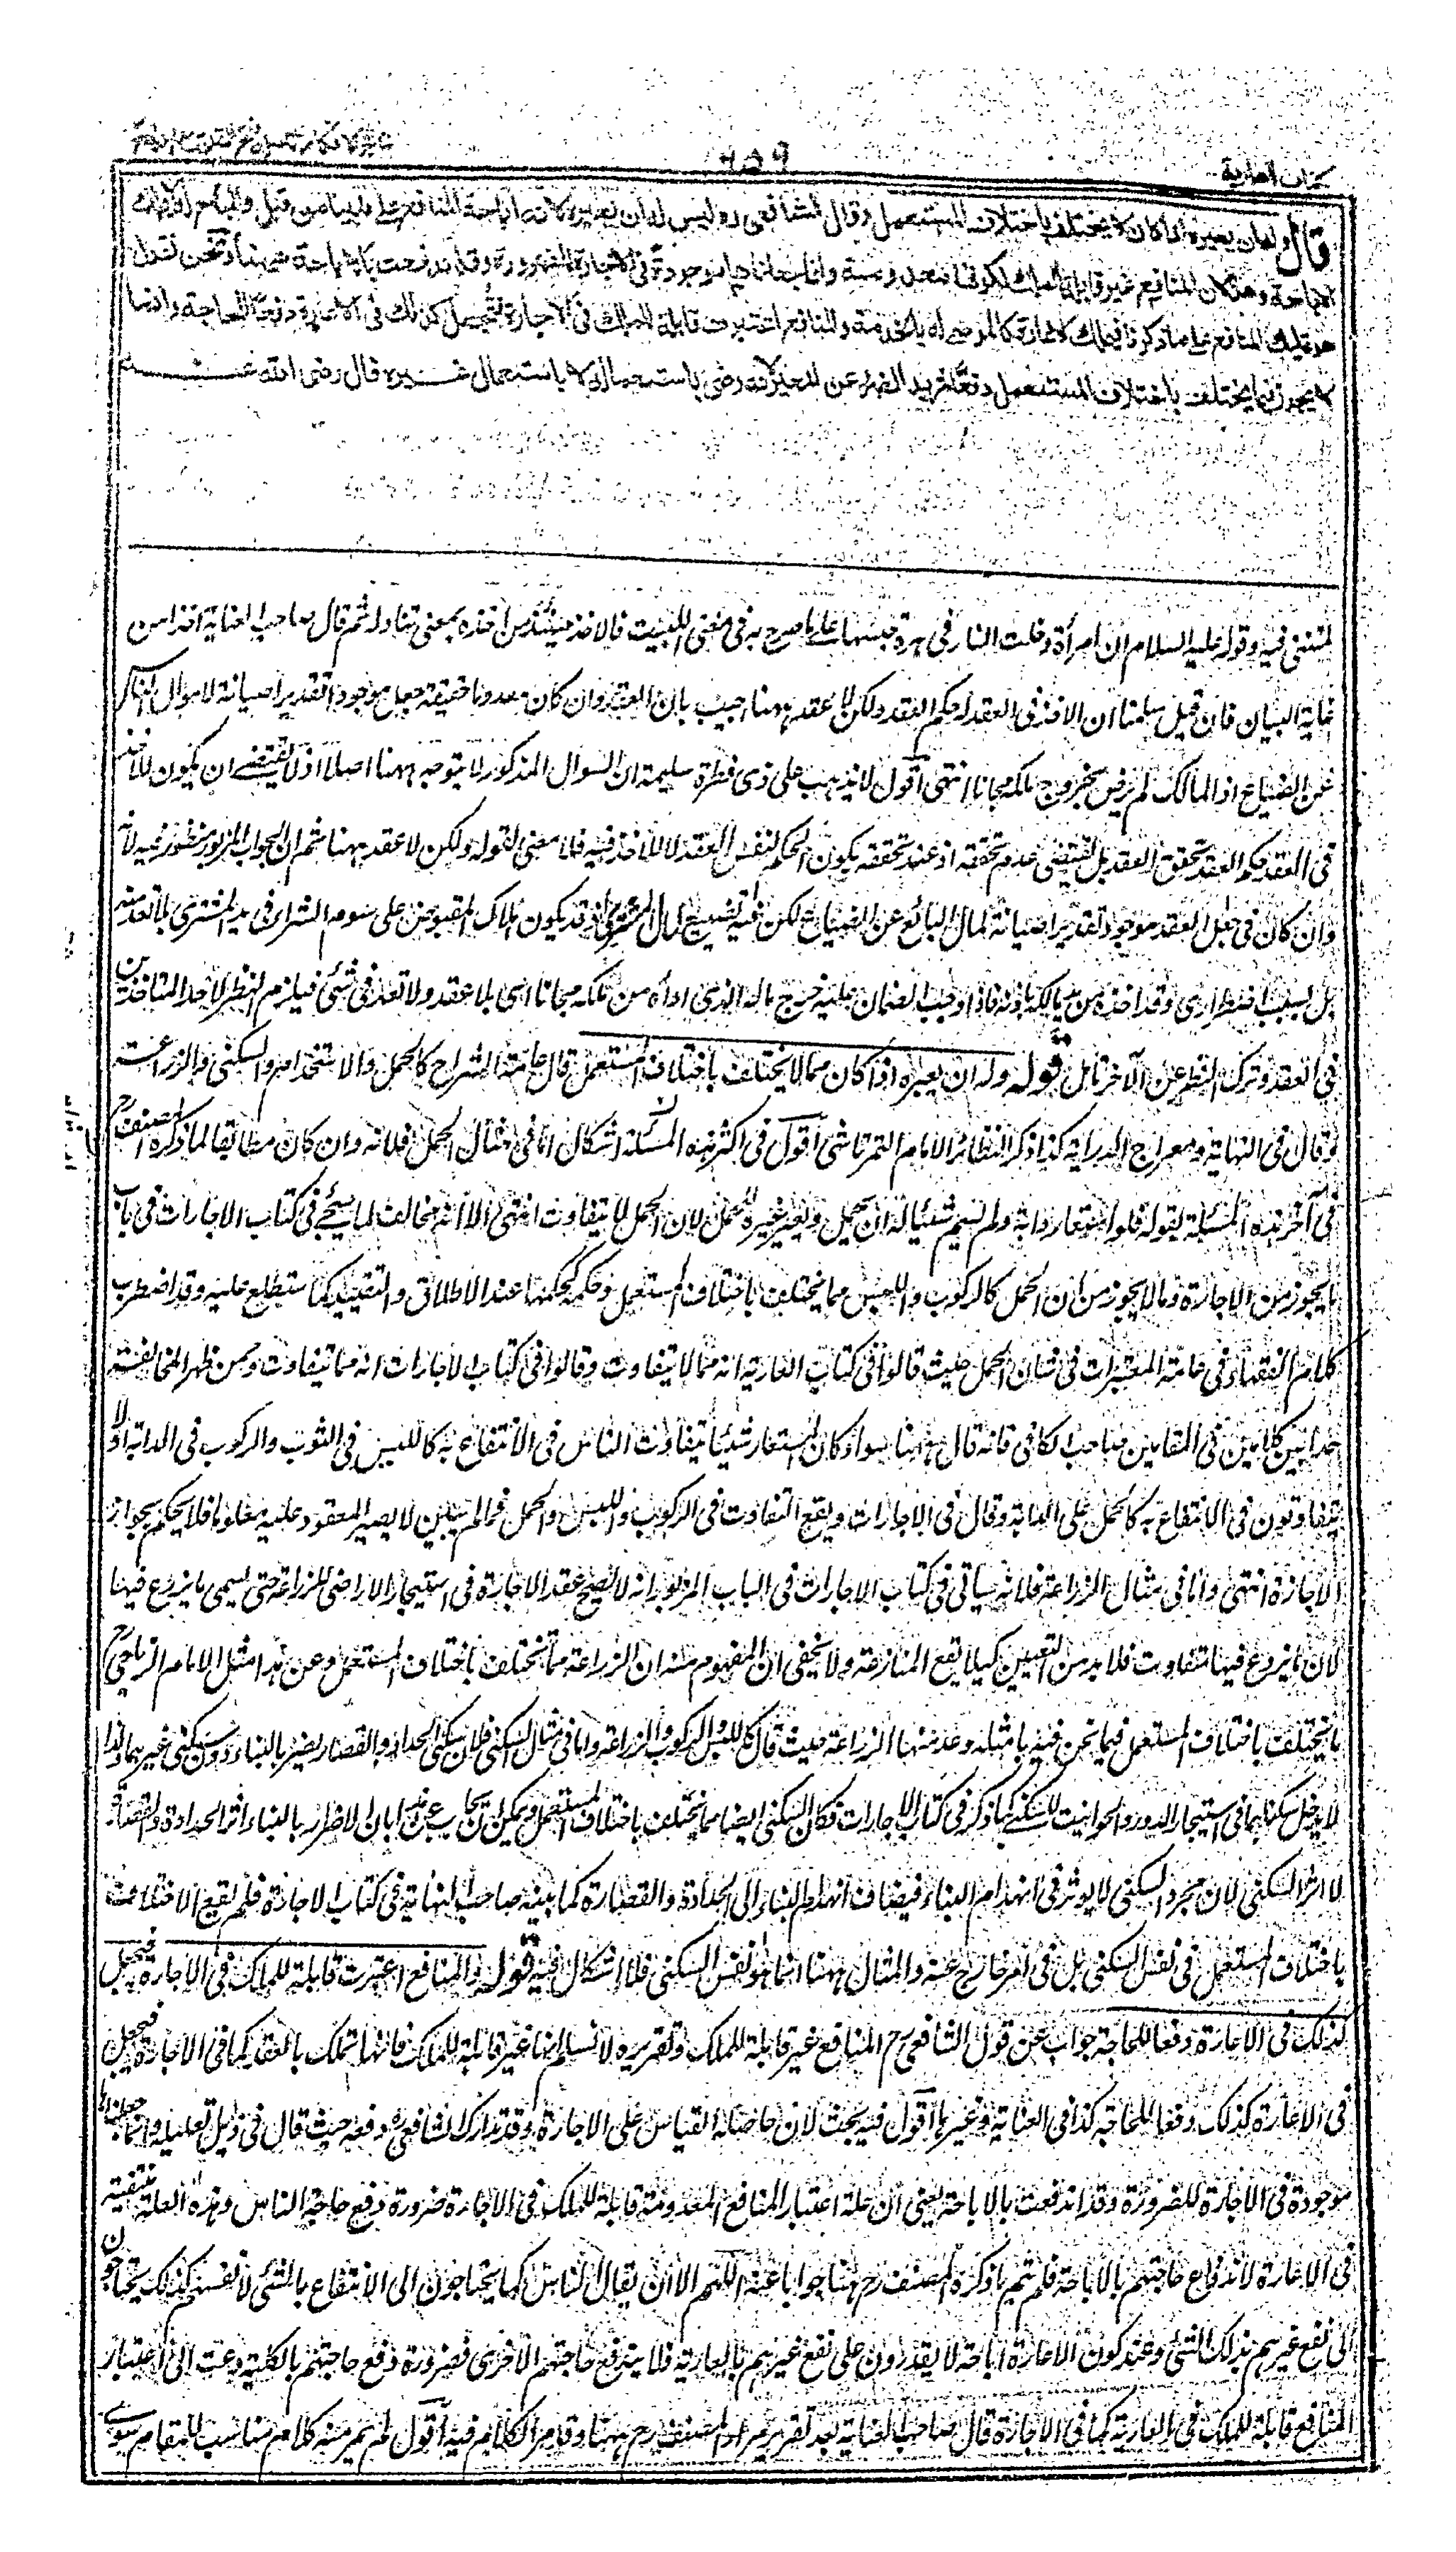 كتاب العارية
٩٥٩
قال وله ان يعيره اذا كان لا يختلف باختلاف المستعمل وقال الشافعى ره ليس له ان يعيره لانه اباحة المنافع على ما بينا من قبل والمباح له لا يملك
الاباحة وهذا لان المنافع غير قابلة للملك لكونها معدومة وانما جعلناها موجودة فى الاجارة للضرورة وقد اندفعت بالاباحة ههنا ونحن نقول
هو تمليك المنافع على ما ذكرنا فيملك الاعارة كالموصى له بالخدمة والمنافع اعتبرت قابلة للملك فى الاجارة فتجعل كذلك فى الاعارة دفعا للحاجة وانما
لا يجوز فيما يختلف باختلاف المستعمل دفعا لمزيد الضرر عن المعير لانه رضى باستعماله لا باستعمال غيره قال رضى الله عنه
فيه وقوله عليه السلام ان امرأة دخلت النار فى هرة حبستها على ما صرح به فى مغنى اللبيب فالاخذ حينئذ من اخذه بمعنى تناوله ثم قال صاحب العناية اخذا من
غاية البيان فان قيل سلمنا ان الاخذ فى العقد له حكم العقد ولكن لا عقد ههنا اجيب بان العقد وان كان معدوما حقيقة جعل موجودا تقديرا صيانة لاموال الناس
عن الضياع اذ المالك لم يرض بخروج ملكه مجانا انتهى اقول لا يذهب على ذى فطرة سليمة ان السوال المذكور لا يتوجه ههنا اصلا اذ لا يقتضى ان يكون للاخذ
فى العقد حكم العقد تحقق العقد بل يقتضى عدم تحققه اذ عند تحققه يكون الحكم لنفس العقد لا للاخذ فيه فلا معنى لقوله ولكن لا عقد ههنا ثم ان الجواب المزبور منظور فيه لانه
وان كان فى جعل العقد موجودا تقديرا صيانة لمال البائع عن الضياع لكن فيه تضييع لمال المشترى اذ قد يكون هلاك المقبوض على سوم الشراء فى يد المشترى بلا تعد منه
بل بسبب اضطرارى وقد اخذه من يد مالكه باذنه فاذا اوجب الضمان عليه خرج ماله الذى اداه من ملكه مجانا اى بلا عقد ولا تعد فى شئ فيلزم النظر لاحد المتاخذين
فى العقد وترك النظر عن الآخر تامل قوله وله ان يعيره اذا كان مما لا يختلف باختلاف المستعمل قال عامة الشراح كالحمل والاستخدام والسكنى والزراعة
وقال فى النهاية ومعراج الدراية كذا ذكر النظائر الامام التمرتاشى اقول فى اكثر هذه المسئلة اشكال اما فى مثال الحمل فلانه وان كان مطابقا لما ذكره المصنف رح
فى آخر هذه المسئلة بقوله فلو استعار دابة ولم يسم شيئا له ان يحمل ويعير غيره للحمل لان الحمل لا يتفاوت انتهى الا انه مخالف لما سيجئ فى كتاب الاجارات فى باب
ما يجوز من الاجارة وما لا يجوز من ان الحمل كالركوب واللبس مما يختلف باختلاف المستعمل وحكمه كحكمها عند الاطلاق والتقييد كما ستطلع عليه وقد اضطرب
كلام الفقهاء فى عامة المعتبرات فى شان الحمل حيث قالوا فى كتاب العارية انه مما لا يتفاوت وقالوا فى كتاب الاجارات انه مما يتفاوت وممن ظهر المخالفة
جدا بين كلاميه فى المقامين صاحب الكافى فانه قال ههنا سواء كان المستعار شيئا يتفاوت الناس فى الانتفاع به كاللبس فى الثوب والركوب فى الدابة او لا
يتفاوتون فى الانتفاع به كالحمل على الدابة وقال فى الاجارات ويقع التفاوت فى الركوب واللبس والحمل فما لم يتبين لا يصير المعقود عليه معلوما فلا يحكم بجواز
الاجازة انتهى واما فى مثال الزراعة فلانه سياتى فى كتاب الاجارات فى الباب المزبور انه لا يصح عقد الاجارة فى استيجار الاراضى للزراعة حتى يسمى ما يزرع فيها
لان ما يزرع فيها متفاوت فلا بد من التعيين كيلا يقع المنازعة ولا يخفى ان المفهوم منه ان الزراعة مما تختلف باختلاف المستعمل وعن هذا مثل الامام الزيلعى رح
ما يختلف باختلاف المستعمل فيما نحن فيه بامثلة وعد منها الزراعة حيث قال كاللبس والركوب والزراعة واما فى مثال السكنى فلان سكنى الحداد والقصار يضر بالبناء دون سكنى غيرهما ولذا
لا يدخل سكناهما فى استيجار الدور والحوانيت للسكنى كما ذكر فى كتاب الاجارات فكان السكنى ايضا مما يختلف باختلاف المستعمل ويمكن ان يجاب عنه بان الاضرار بالبناء اثر الحدادة والقصارة
لا اثر السكنى لان مجرد السكنى لا يوثر فى انهدام البناء فيضاف انهدام البناء الى الحدادة والقصارة كما بينه صاحب النهاية فى كتاب الاجارة فلم يقع الاختلاف
باختلاف المستعمل فى نفس السكنى بل فى امر خارج عنه والمثال ههنا انما هو نفس السكنى فلا اشكال فيه قوله والمنافع اعتبرت قابلة للملك فى الاجارة فتجعل
كذلك فى الاعارة دفعا للحاجة جواب عن قول الشافعى رح المنافع غير قابلة للملك وتقريره لا نسلم انها غير قابلة للملك فانها تملك بالعقد كما فى الاجارة فتجعل
فى الاعارة كذلك دفعا للحاجة كذا فى العناية وغيرها اقول فيه بحث لان حاصله القياس على الاجارة وقد تدارك الشافعى دفعه حيث قال فى ذيل تعليله وانما جعلناها
موجودة فى الاجارة للضرورة وقد اندفعت بالاباحة يعنى ان علة اعتبار المنافع المعدومة قابلة للملك فى الاجارة ضرورة دفع حاجة الناس وهذه العلة منتفية
فى الاعارة لاندفاع حاجتهم بالاباحة فلم يتم ما ذكره المصنف رح ههنا جوابا عنه اللهم الا ان يقال الناس كما يحتاجون الى الانتفاع بالشئ لانفسهم كذلك يحتاجون
الى نفع غيرهم بذلك الشئ وعند كون الاعارة اباحة لا يقدرون على نفع غيرهم بالعارية فلا يندفع حاجتهم الاخرى فضرورة دفع حاجتهم بالكلية دعت الى اعتبار
المنافع قابلة للملك فى العارية كما فى الاجارة قال صاحب العناية بعد تقرير مراد المصنف رح ههنا وقام الكلام فيه اقول لم يمر منه كلام مناسب للمقام سوى